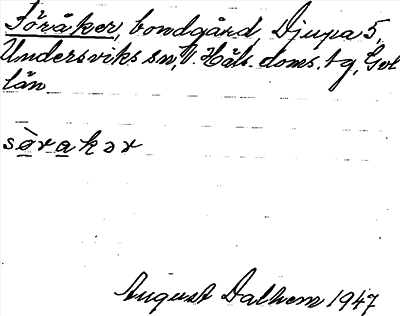 Söråker, bondgård, Djupa 5,
Undersviks sn, V. Häls. doms. tg, Gvl
län
sòrakər
August Dalhem 1947